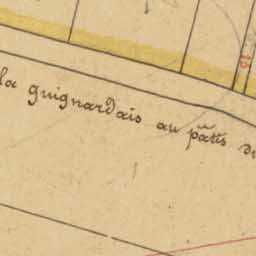 la guignardais au pâtis du
13